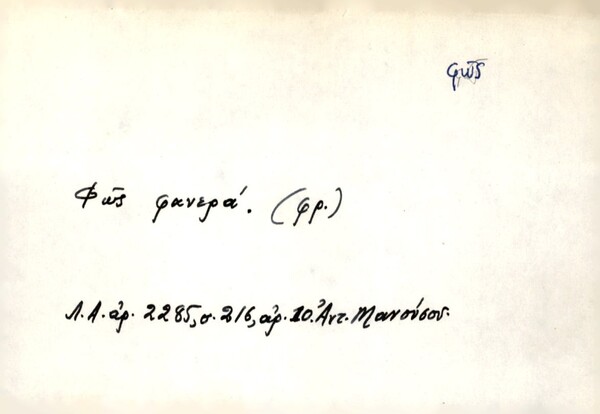 φῶς
Φῶς φανερά. (φρ.)
Λ.Α. ἀρ. 2285, σ. 216, ἀρ. 10. Ἀντ. Μανούσου.